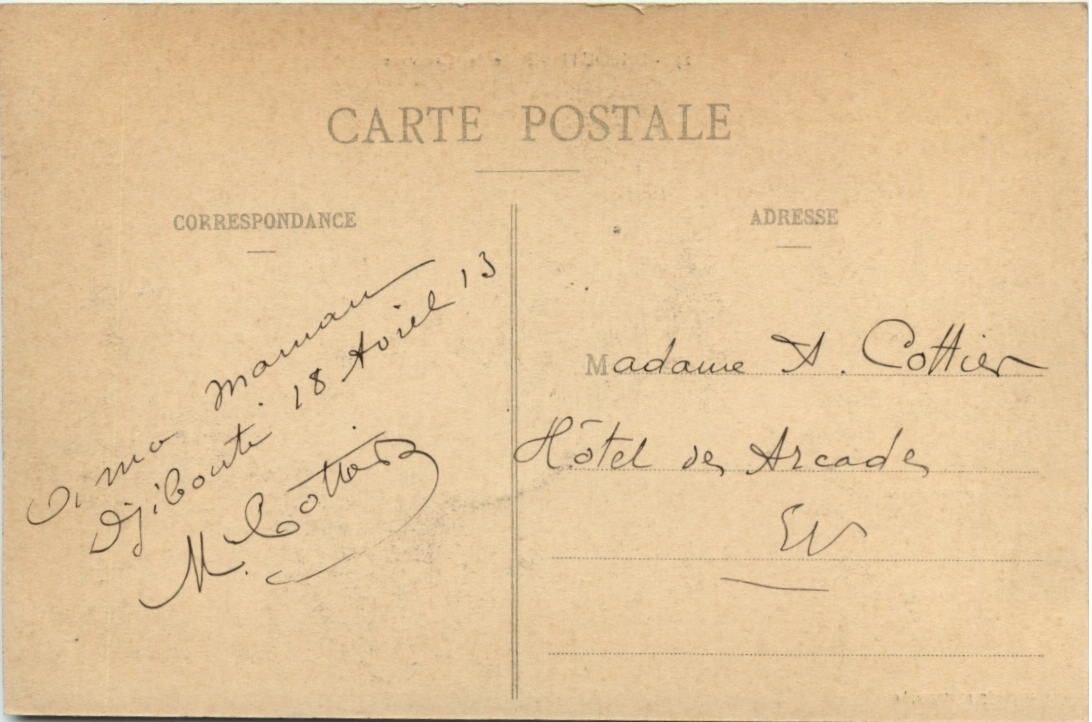 CARTE POSTALE
CORRESPONDANCE
à ma maman
Djibouti 18 Avril 13
M. Cottier
ADRESSE
Madame A. Cottier
Hôtel des Arcades
EV